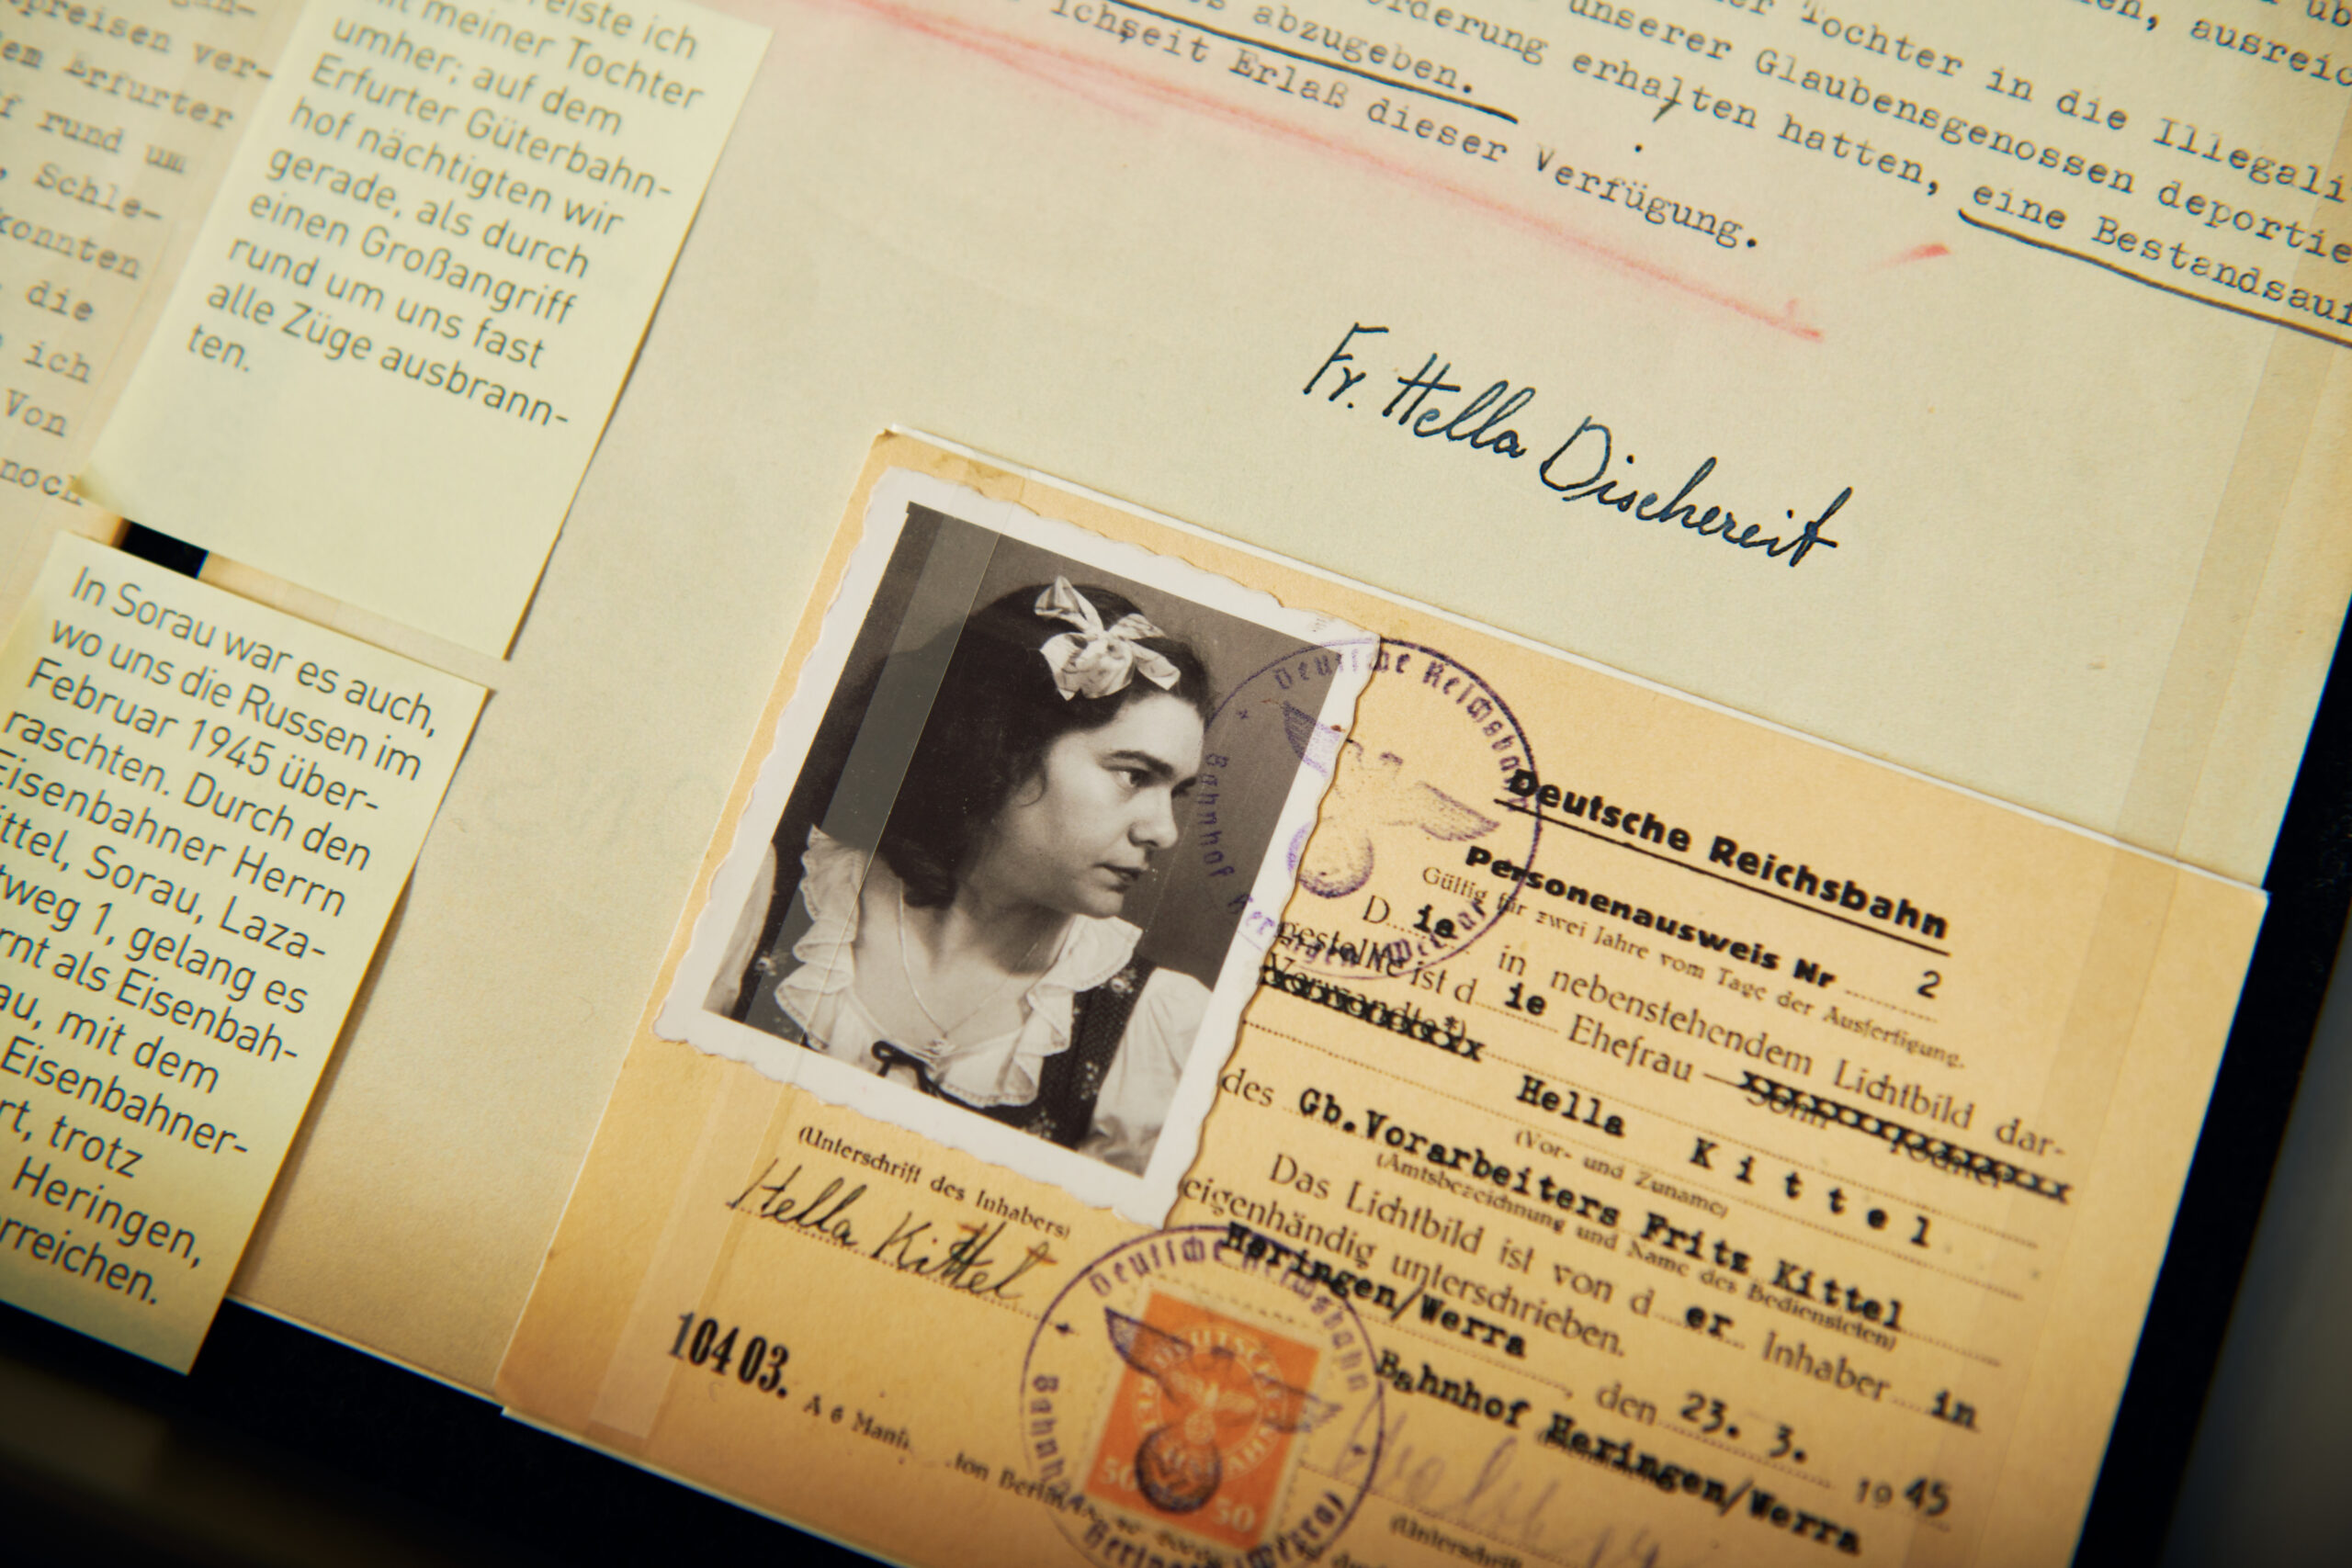 preisen ver-
em Erfurter
rund um
, Schle-
konnten
. die
ich
Von
noch
reiste ich
mit meiner Tochter
umher; auf dem
Erfurter Güterbahn-
hof nächtigten wir
gerade, als durch
einen Großangriff
rund um uns fast
alle Züge ausbrann-
ten.
In Sorau war es auch,
wo uns die Russen im
Februar 1945 über-
raschten. Durch den
Eisenbahner Herrn
ittel, Sorau, Laza-
tweg 1, gelang es
rnt als Eisenbah-
au, mit dem
Eisenbahner-
rt, trotz
Heringen,
rreichen.
Tochter in die Illegali
unserer Glaubensgenossen deportie
orderung erhalten hatten, eine Bestandsauf
abzugeben.
ich seit Erlaß dieser Verfügung.
ausreic
Fr. Hella Dischereit
Deutsche Reichsbahn
Bahnhof
Deutsche Reichsbahn
Personenausweis Nr 2
Gültig für zwei Jahre vom Tage der Ausfertigung.
D ie in nebenstehendem Lichtbild dar-
gestellte ist d ie Ehefrau
Hella Kittel
(Vor- und Zuname)
des Gb.Vorarbeiters Fritz Kittel
(Amtsbezeichnung und Name des Bediensteten)
Das Lichtbild ist von d er Inhaber in
eigenhändig unterschrieben.
Heringen/Werra, den 23. 3. 1945
Bahnhof Heringen/Werra
(Unterschrift
(Unterschrift des Inhabers)
Hella Kittel
104 03. A 6 Mani
Deutsche Reichsbahn
50 50